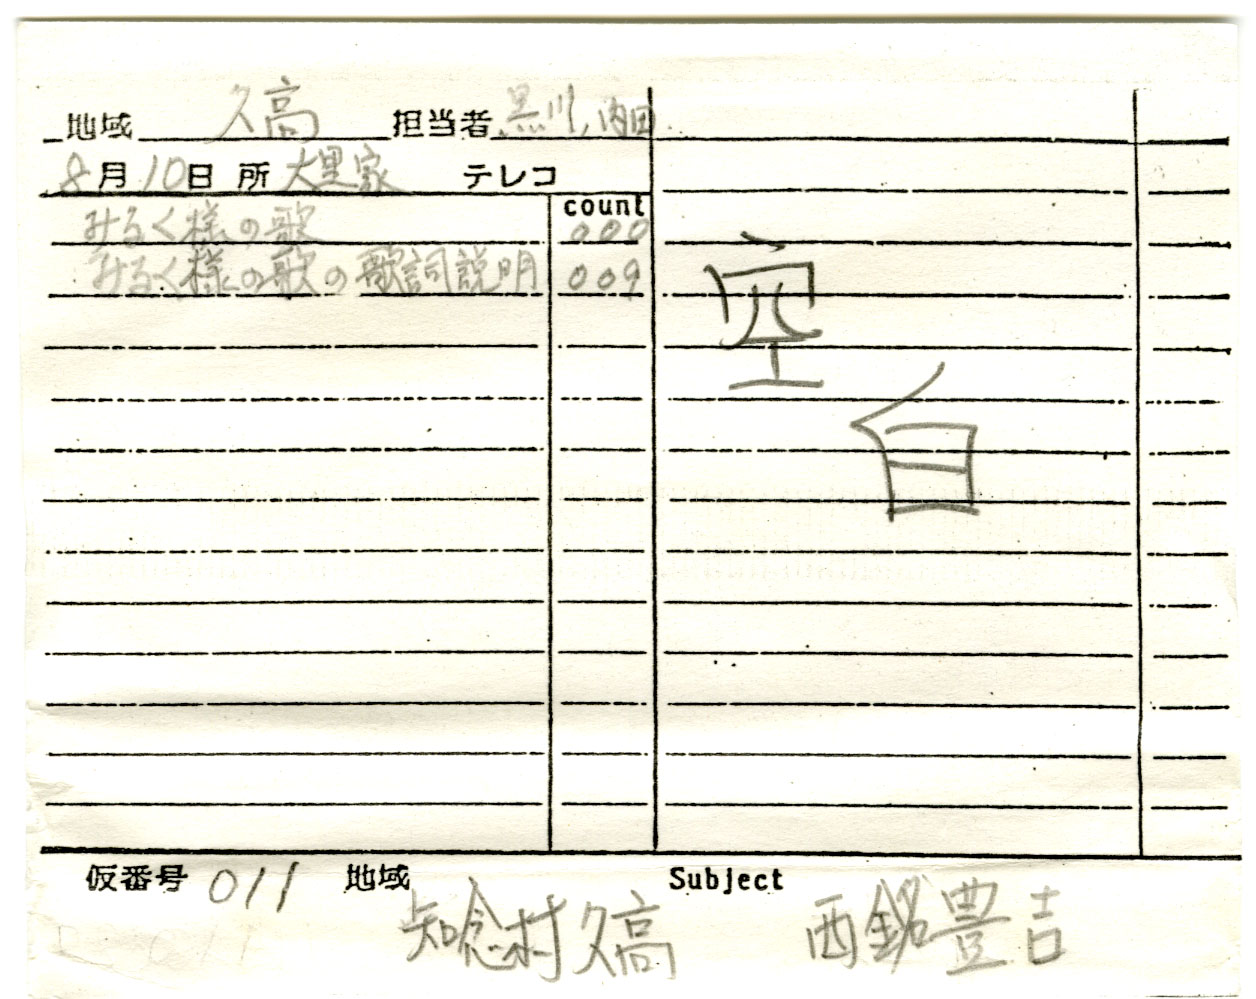 地域 久高 担当者 黒川、内田
8月10日 所 大里家 テレコ
count
みるく様の歌 000
みるく様の歌の歌詞説明 009
空
白
仮番号 011 地域 Subject
知念村久高 西銘豊吉